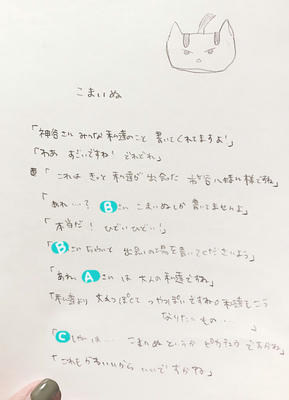 こまいぬ
「神谷さん みんな 私達のこと 書いてくれてますよ」
「わあ すごいですね! どれどれ」
「これは きっと 私達が出会った 市谷八幡様ですね」
「あれ…? Bさん こまいぬしか書いてませんよ」
「本当だ! ひどいひどい!」
「Bさん ちゃんと 出会いの場を書いてくださいよう」
「あれ、Aさん は 大人の私達ですね」
「私達より 大人っぽくて つやっぽいですね。私達もこう
なりたいもの…」
「Cしゃんは… こまいぬというか ピカチュウ ですかね」
「これもかわいいから いいですかね」